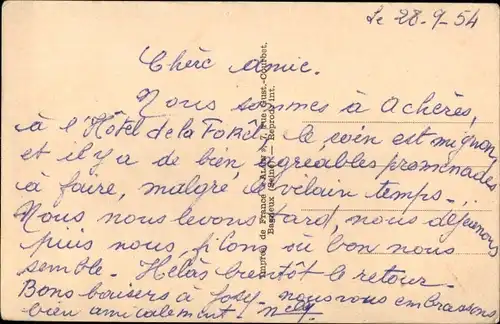 Le 28-9-54
Chère Amie.
Nous sommes à Achères,
à l'Hôtel de la Forêt, le coin est mignon,
et il y a de bien agréables promenades
à faire, malgré le vilain temps.
Nous nous levons tard, nous déjeunons
puis nous filons où bon nous
semble. Hélas bientôt le retour.
Bons baisers à Josy, nous vous embrassons
bien amicalement. Nelly
de France, Rue Gust.-Courbet,
Bagneux (Seine). — Reprod. int.